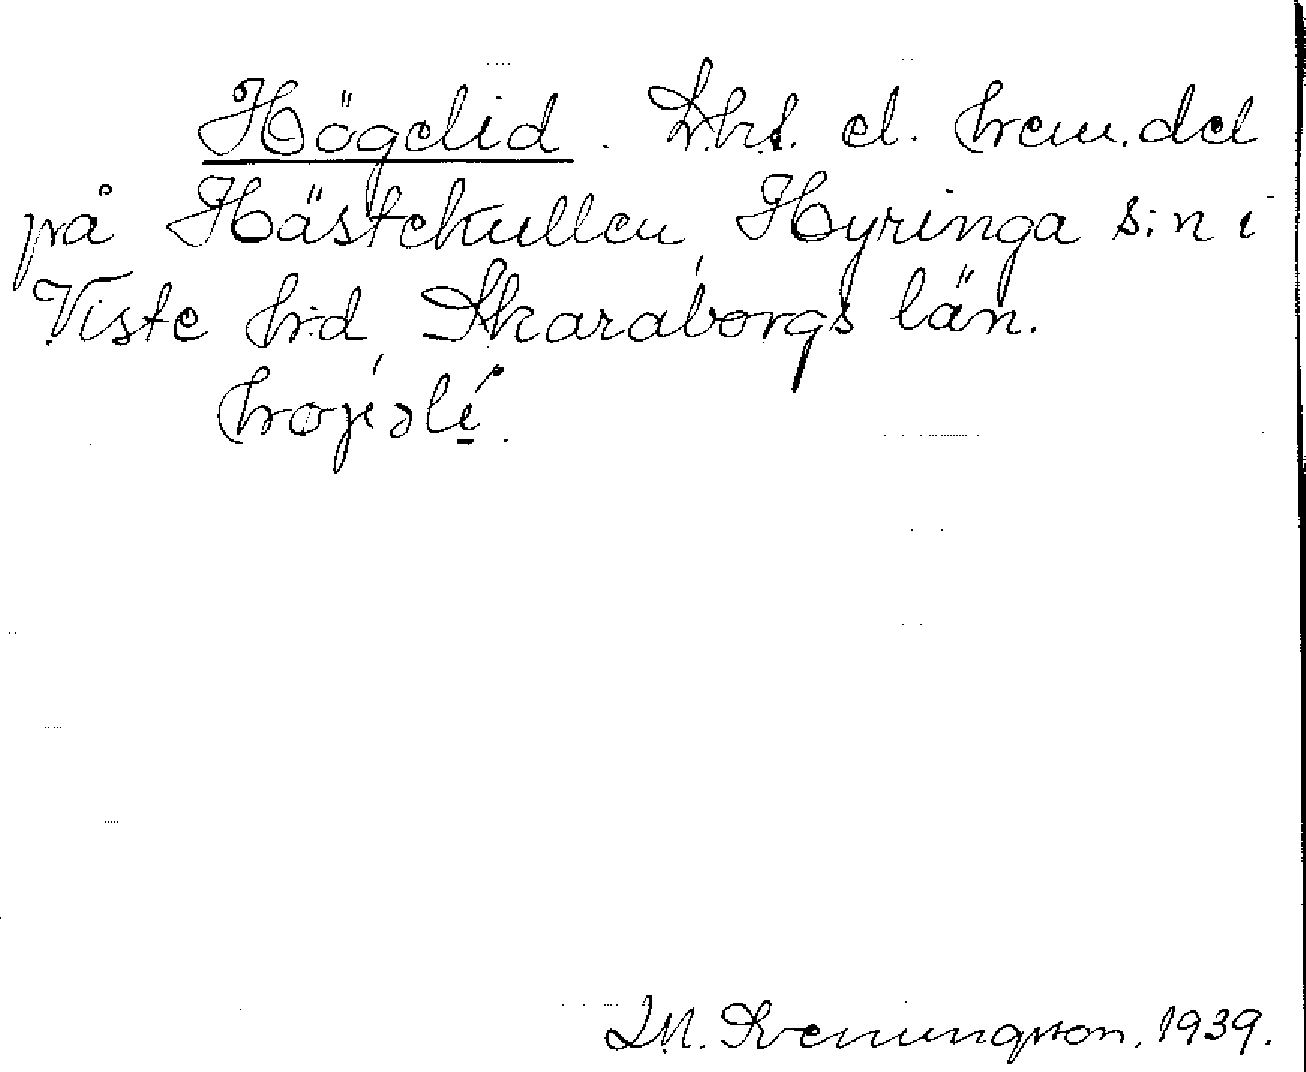 Högelid. Lht. el. hem.del
på Hästekullen, Hyringa s:n i
Viste hd, Skaraborgs län.
M. Svenningson. 1939.